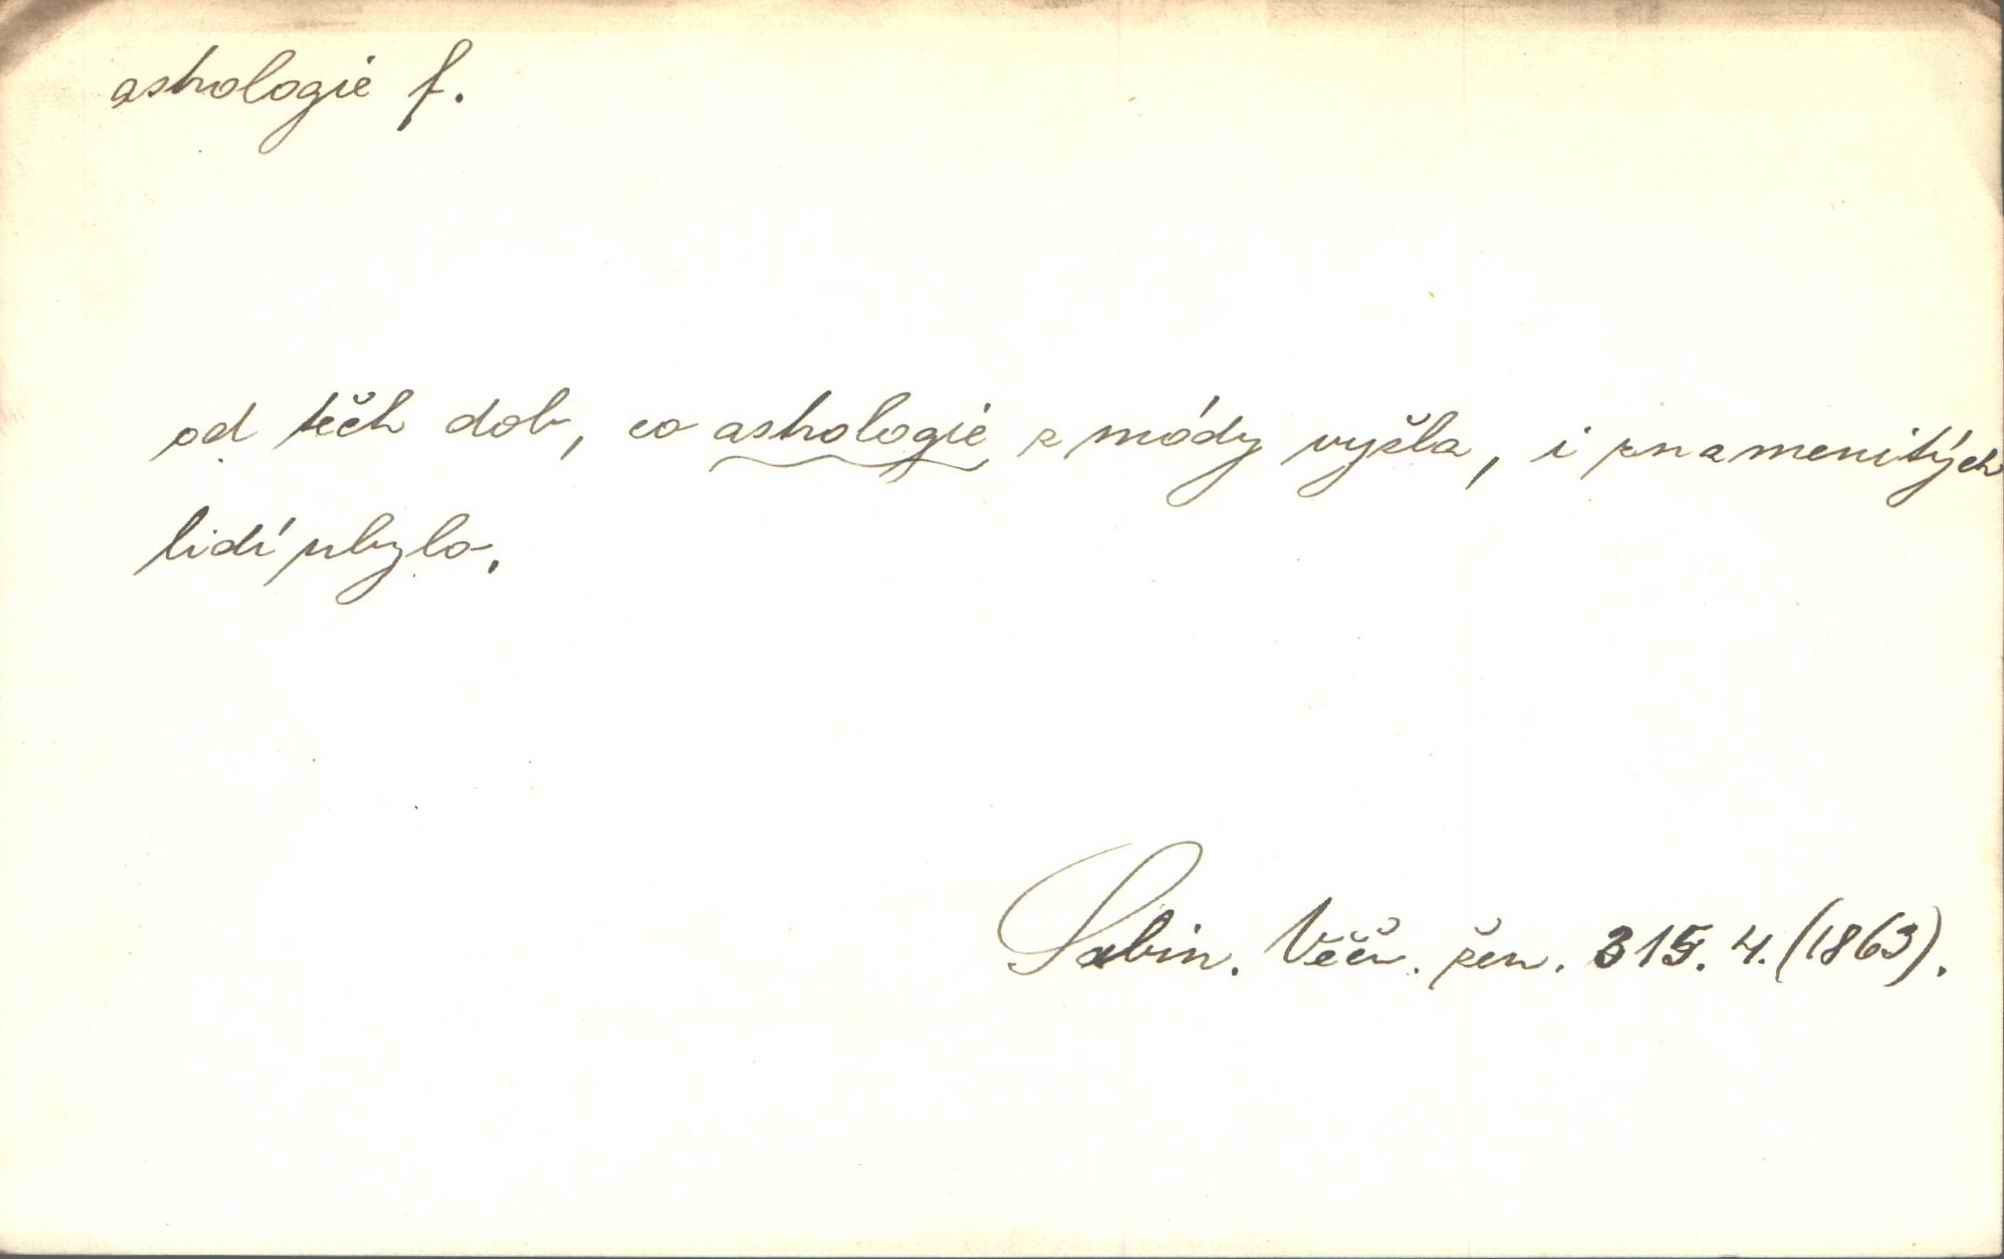 astrologie f.
od těch dob, co astrologie z módy vyšla, i znamenitých
lidí ubylo.
Sabin. Věčn. žen. 315. 4. (1863).